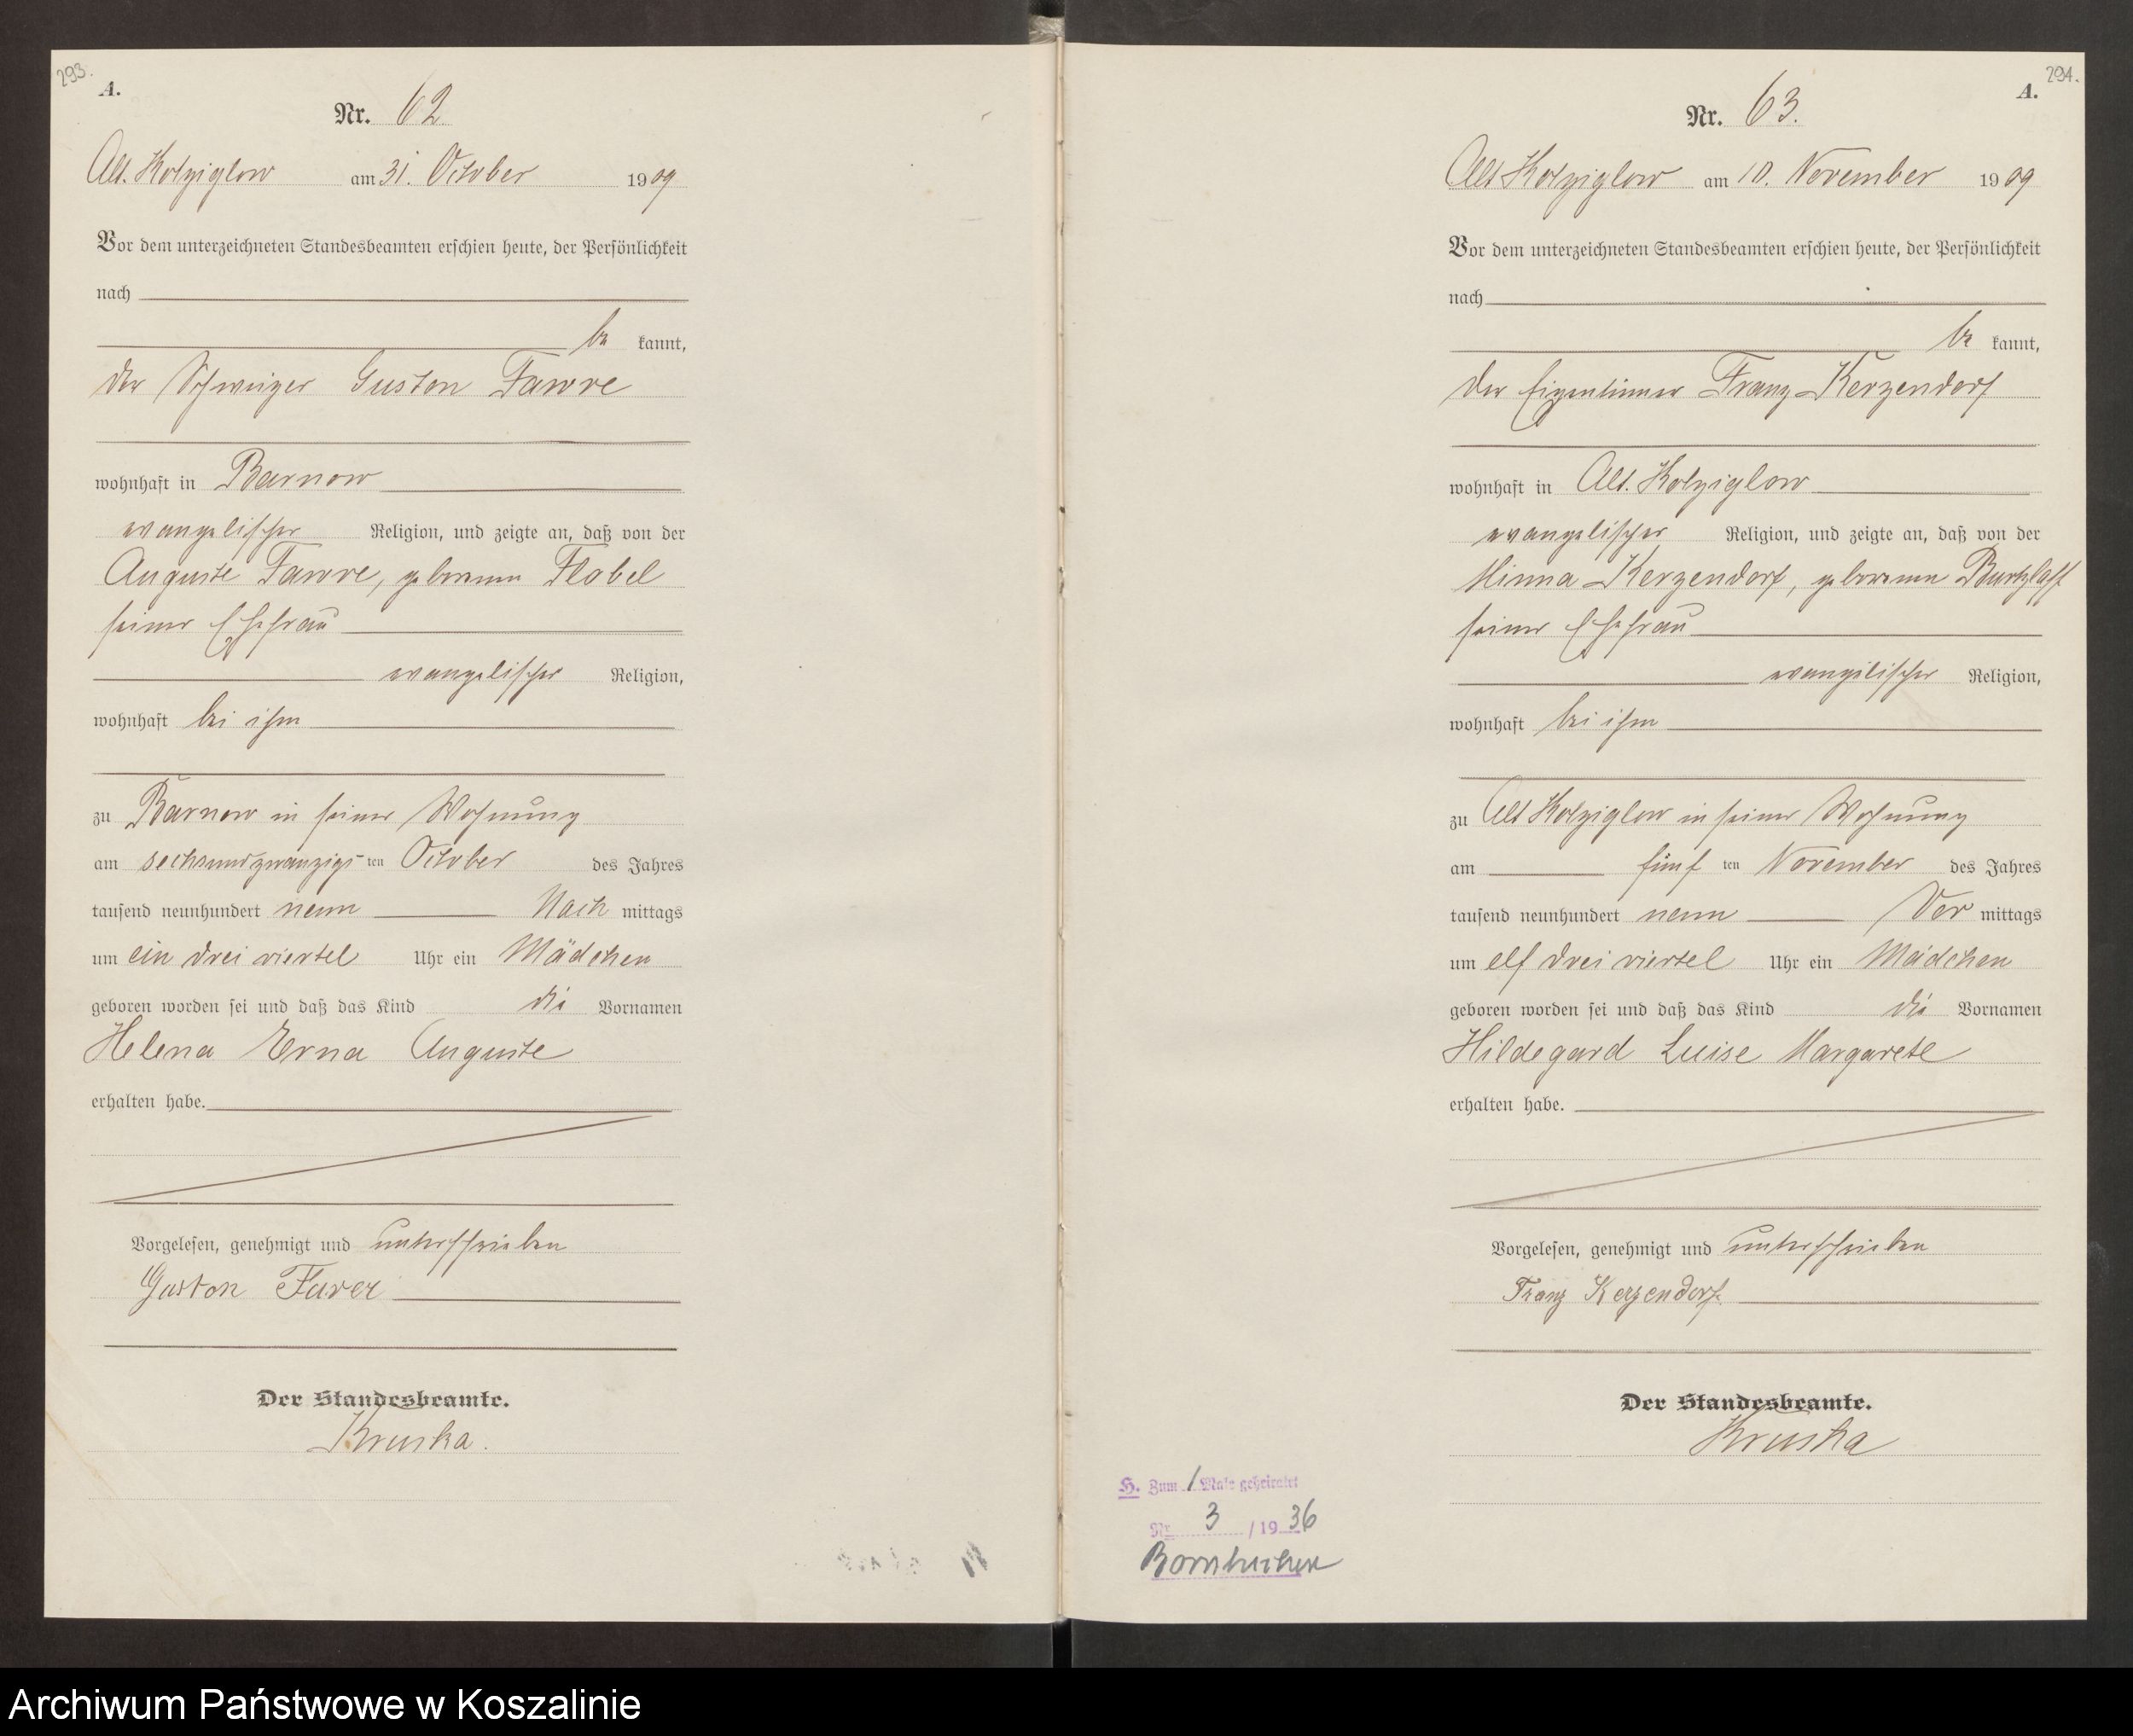 293.
A.
Nr. 62
Alt. Kolziglow am 31. October 1909
Vor dem unterzeichneten Standesbeamten erschien heute, der Persönlichkeit
nach
be kannt,
der Schweizer Guston Fawre
wohnhaft in Barnow
evangelischer Religion, und zeigte an, daß von der
Auguste Fawre, geborenen Flobel
seiner Ehefrau
evangelischer Religion,
wohnhaft bei ihm
zu Barnow in seiner Wohnung
am sechsundzwanzigs ten October des Jahres
tausend neunhundert neun Nach mittags
um ein drei viertel Uhr ein Mädchen
geboren worden sei und daß das Kind die Vornamen
Helena Erna Auguste
erhalten habe.
Vorgelesen, genehmigt und unterschrieben
Gaston Faver
Der Standesbeamte.
Kruska.
294.
A.
Nr. 63.
Alt Kolziglow am 10. November 1909
Vor dem unterzeichneten Standesbeamten erschien heute, der Persönlichkeit
nach
be kannt,
der Eigentümer Franz Kerzendorf
wohnhaft in Alt. Kolziglow
evangelischer Religion, und zeigte an, daß von der
Minna Kerzendorf, geborenen Burtzlaff
seiner Ehefrau
evangelischer Religion,
wohnhaft bei ihm
zu Alt Kolziglow in seiner Wohnung
am fünf ten November des Jahres
tausend neunhundert neun Vor mittags
um elf drei viertel Uhr ein Mädchen
geboren worden sei und daß das Kind die Vornamen
Hildegard Luise Margarete
erhalten habe.
Vorgelesen, genehmigt und unterschrieben
Franz Kerzendorf.
Der Standesbeamte.
Kruska
H. Zum 1 Male geheiratet
Nr. 3 /1936
Bornhuchen
Archiwum Państwowe w Koszalinie